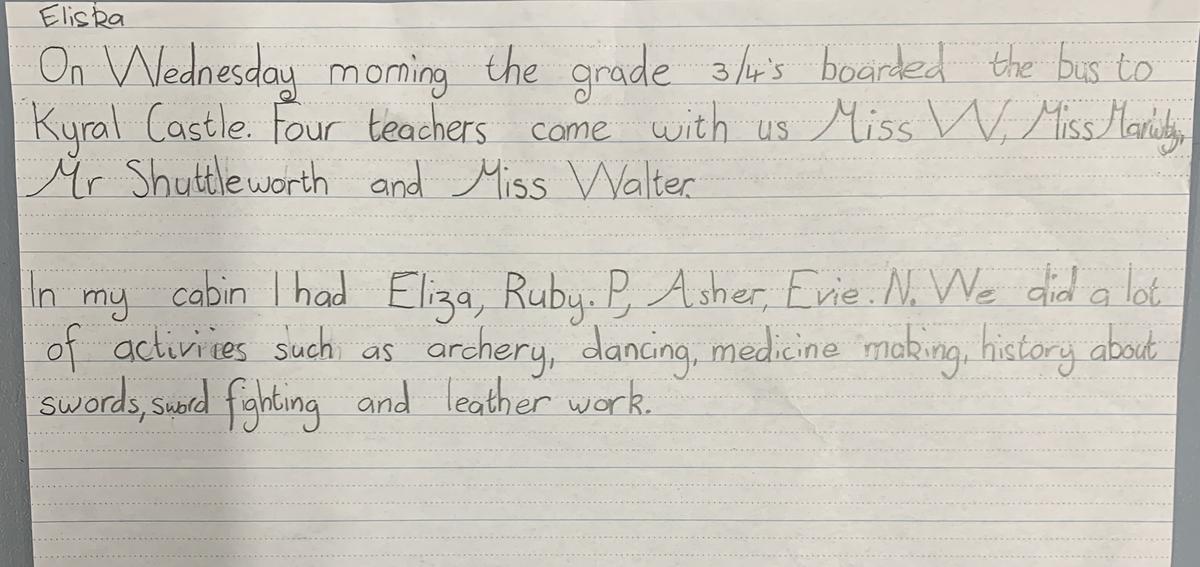 Eliska
On Wednesday morning the grade 3/4's boarded the bus to
Kyral Castle. Four teachers came with us Miss W, Miss
Mr Shuttleworth and Miss Walter.
In my cabin I had Eliza, Ruby. P, Asher, Evie. N. We did a lot
of activities such as archery, dancing, medicine making, history about
swords, sword fighting and leather work.